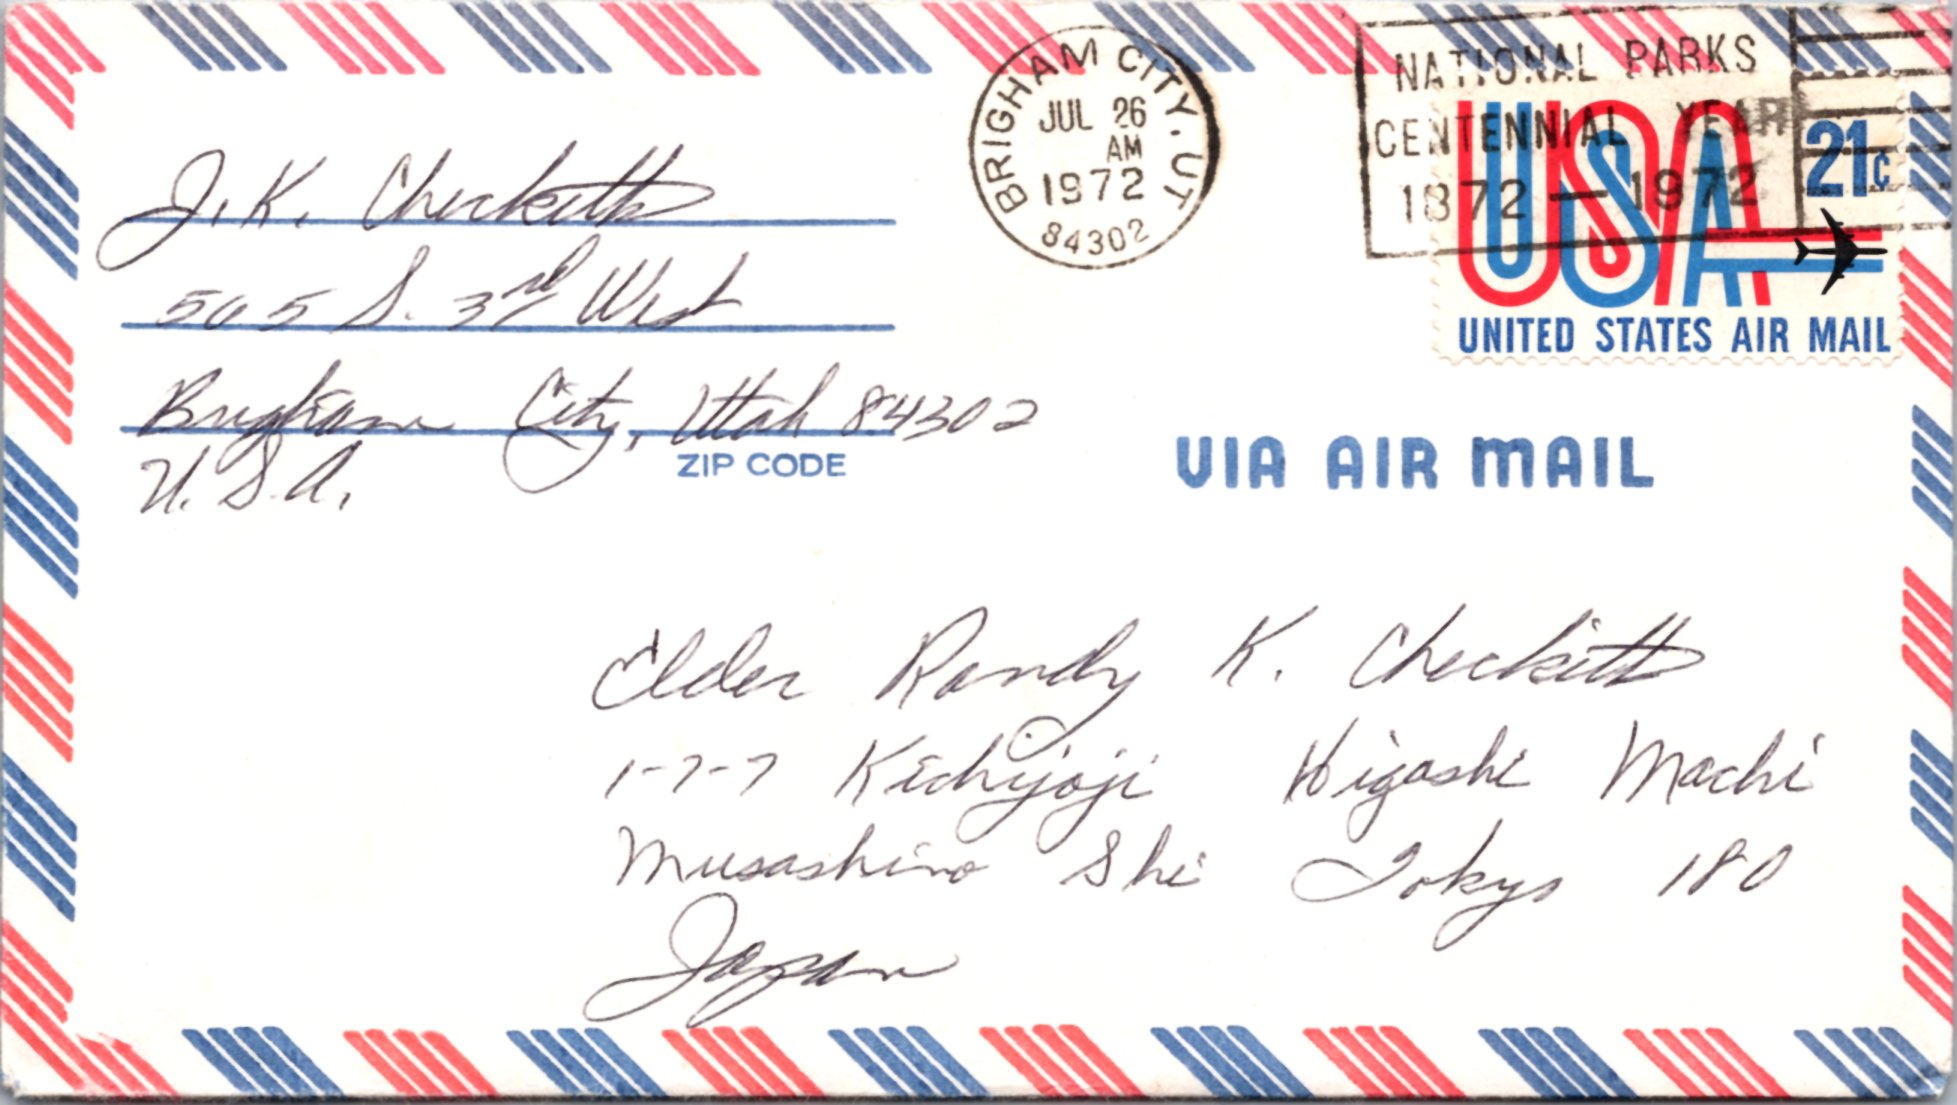 J. K. Checketts
505 S. 3rd West
Brigham City, Utah 84302
ZIP CODE
U. S. A.
BRIGHAM CITY, UT
JUL 26
AM
1972
84302
NATIONAL PARKS
CENTENNIAL YEAR
1872 — 1972
USA 21c
UNITED STATES AIR MAIL
VIA AIR MAIL
Elder Randy K. Checketts
1-7-7 Kichijoji Higashi Machi
Musashino Shi Tokyo 180
Japan